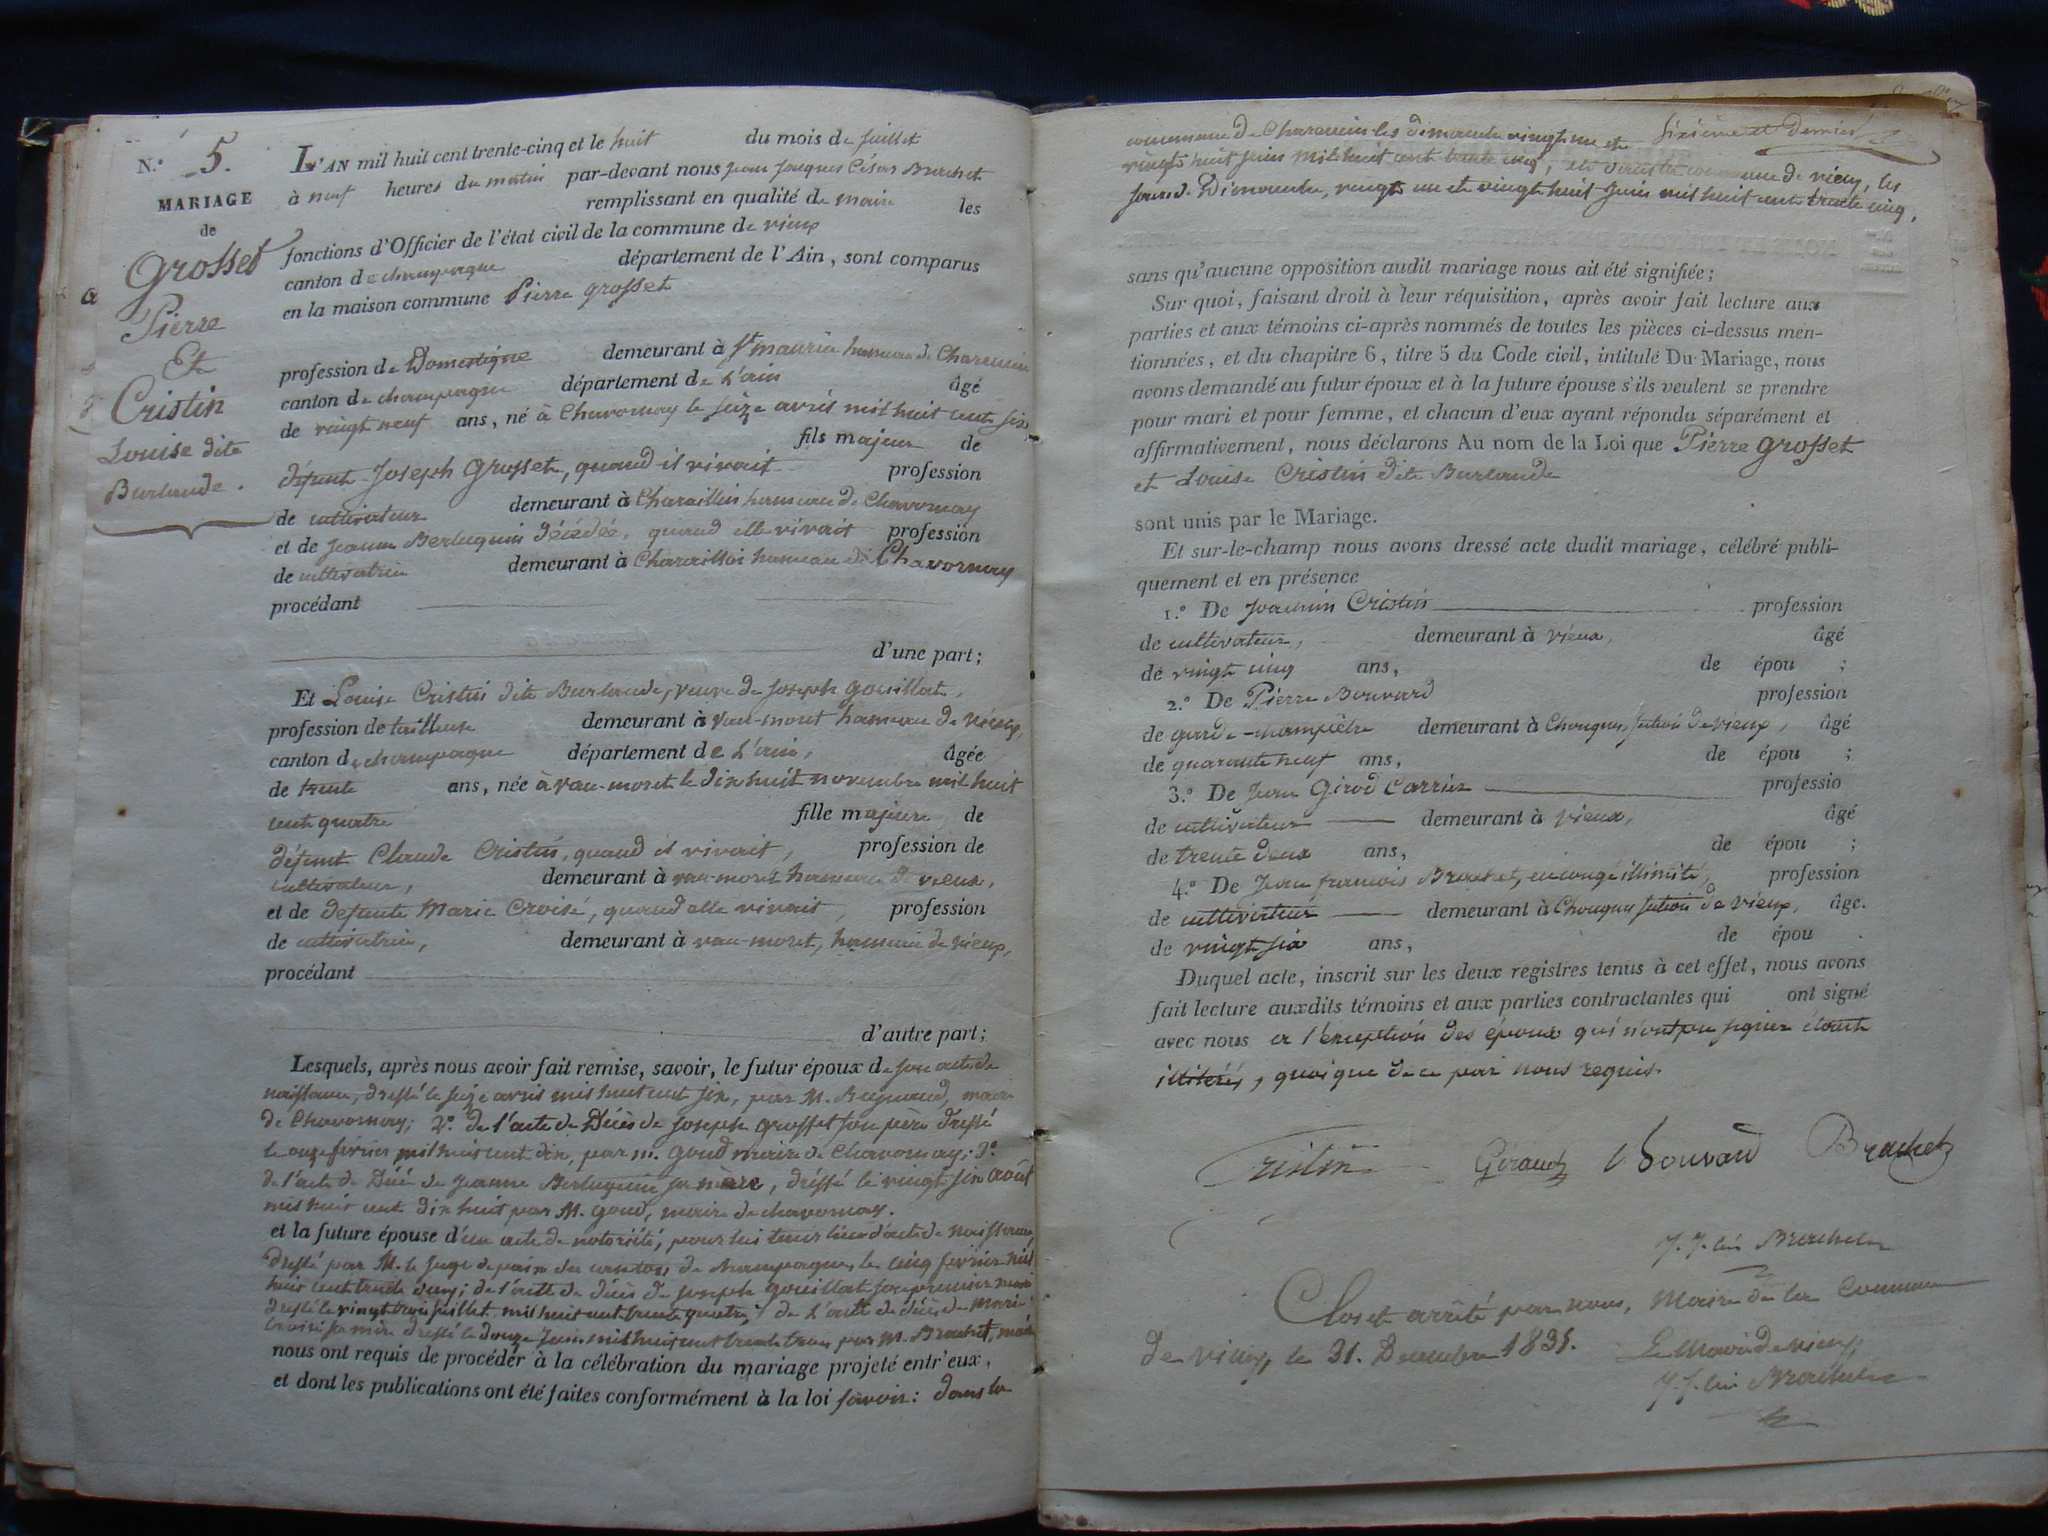 N.º 5.
MARIAGE
de
Grosset
Pierre
Et
Cristin
Louise dite
Burlande.
L'AN mil huit cent trente-cinq et le huit du mois de Juillet
à neuf heures du matin par-devant nous Jean Jacques César Brachet
remplissant en qualité de maire les
fonctions d'Officier de l'état civil de la commune de vieux
canton de champagne département de l'Ain, sont comparus
en la maison commune Pierre grosset
profession de Domestique demeurant à St maurice hameau de Charencin
canton de champagne département de L'ain âgé
de vingt neuf ans, né à Chavornay le seize avril mil huit cent six,
fils majeur de
défunt Joseph Grosset, quand il vivait profession
de cultivateur demeurant à Charaillin hameau de Chavornay
et de jeanne Berluquin décédée, quand elle vivait profession
de cultivatrice demeurant à Charaillin hameau de Chavornay
procédant
d'une part;
Et Louise Cristin dite Burlande, veuve de Joseph gouillat,
profession de tailleuse demeurant à vau-moret hameau de vieux,
canton de champagne département de L'ain, âgée
de trente ans, née à vau-moret le dix huit novembre mil huit
cent quatre fille majeure de
défunt Claude Cristin, quand il vivait, profession de
cultivateur, demeurant à vau-moret hameau de vieux,
et de defunte Marie Croisé, quand elle vivait, profession
de cultivatrice, demeurant à vau-moret, hameau de vieux,
procédant
d'autre part;
Lesquels, après nous avoir fait remise, savoir, le futur époux de son acte de
naissance, dressé le seize avril mil huit cent six, par M. Reynaud, maire
de Chavornay; 2º. de l'acte de Décès de Joseph grosset son père dressé
le onze février mil huit cent dix, par m. goud maire de Chavornay; 3º.
de l'acte de Décé de jeanne Berluquin sa mère, dréssé le vingt six août
mil huit cent dix huit par M. goud, maire de chavornay.
et la future épouse d'un acte de notoriété, pour lui tenir lieu d'acte de naissance,
dréssé par M. le juge de paix du canton de champagne, le cinq février mil
huit cent trente cinq; de l'acte de décès de joseph gouillat son premier mari
dressé le vingt trois juillet mil huit cent trente quatre; de L'acte de décès de Marie
Croisé sa mère dressé le douze Juin mil huit cent trente trois par M. Brachet, maire
nous ont requis de procéder à la célébration du mariage projeté entr'eux,
et dont les publications ont été faites conformément à la loi savoir: dans la
sixième et dernier
commune de Charencin les dimanche vingt un et
vingt huit juin mil huit cent trente cinq, et dans la commune de vieux, les
jours de Dimanche, vingt un et vingt huit Juin mil huit cent trente cinq,
sans qu'aucune opposition audit mariage nous ait été signifiée;
Sur quoi, faisant droit à leur réquisition, après avoir fait lecture aux
parties et aux témoins ci-après nommés de toutes les pièces ci-dessus men-
tionnées, et du chapitre 6, titre 5 du Code civil, intitulé Du Mariage, nous
avons demandé au futur époux et à la future épouse s'ils veulent se prendre
pour mari et pour femme, et chacun d'eux ayant répondu séparément et
affirmativement, nous déclarons Au nom de la Loi que Pierre grosset
et Louise Cristin dite Burlande
sont unis par le Mariage.
Et sur-le-champ nous avons dressé acte dudit mariage, célébré publi-
quement et en présence
1.º De Joachim Cristin profession
de cultivateur, demeurant à vieux, âgé
de vingt cinq ans, de épou ;
2.º De Pierre Bouvard profession
de garde-champêtre demeurant à Chongnes section de vieux, âgé
de quarante neuf ans, de épou ;
3.º De Jean Girod Carrier professio
de cultivateur demeurant à vieux, âgé
de trente deux ans, de épou ;
4.º De Jean francois Brachet, en congé illimité, profession
de cultivateur demeurant à Chongnes section de vieux, âge.
de vingt six ans, de épou .
Duquel acte, inscrit sur les deux registres tenus à cet effet, nous avons
fait lecture auxdits témoins et aux parties contractantes qui ont signé
avec nous a l'exception des époux qui n'ont pu signer étant
illitérés, quoique de ce par nous requis.
Cristin Giraud Bouvard Brachet
J. J. Cés Brachet
Clos et arrêté par nous, Maire de la Commune
de vieux, le 31. Decembre 1835. Le Maire de vieux,
J. J. Cés Brachet